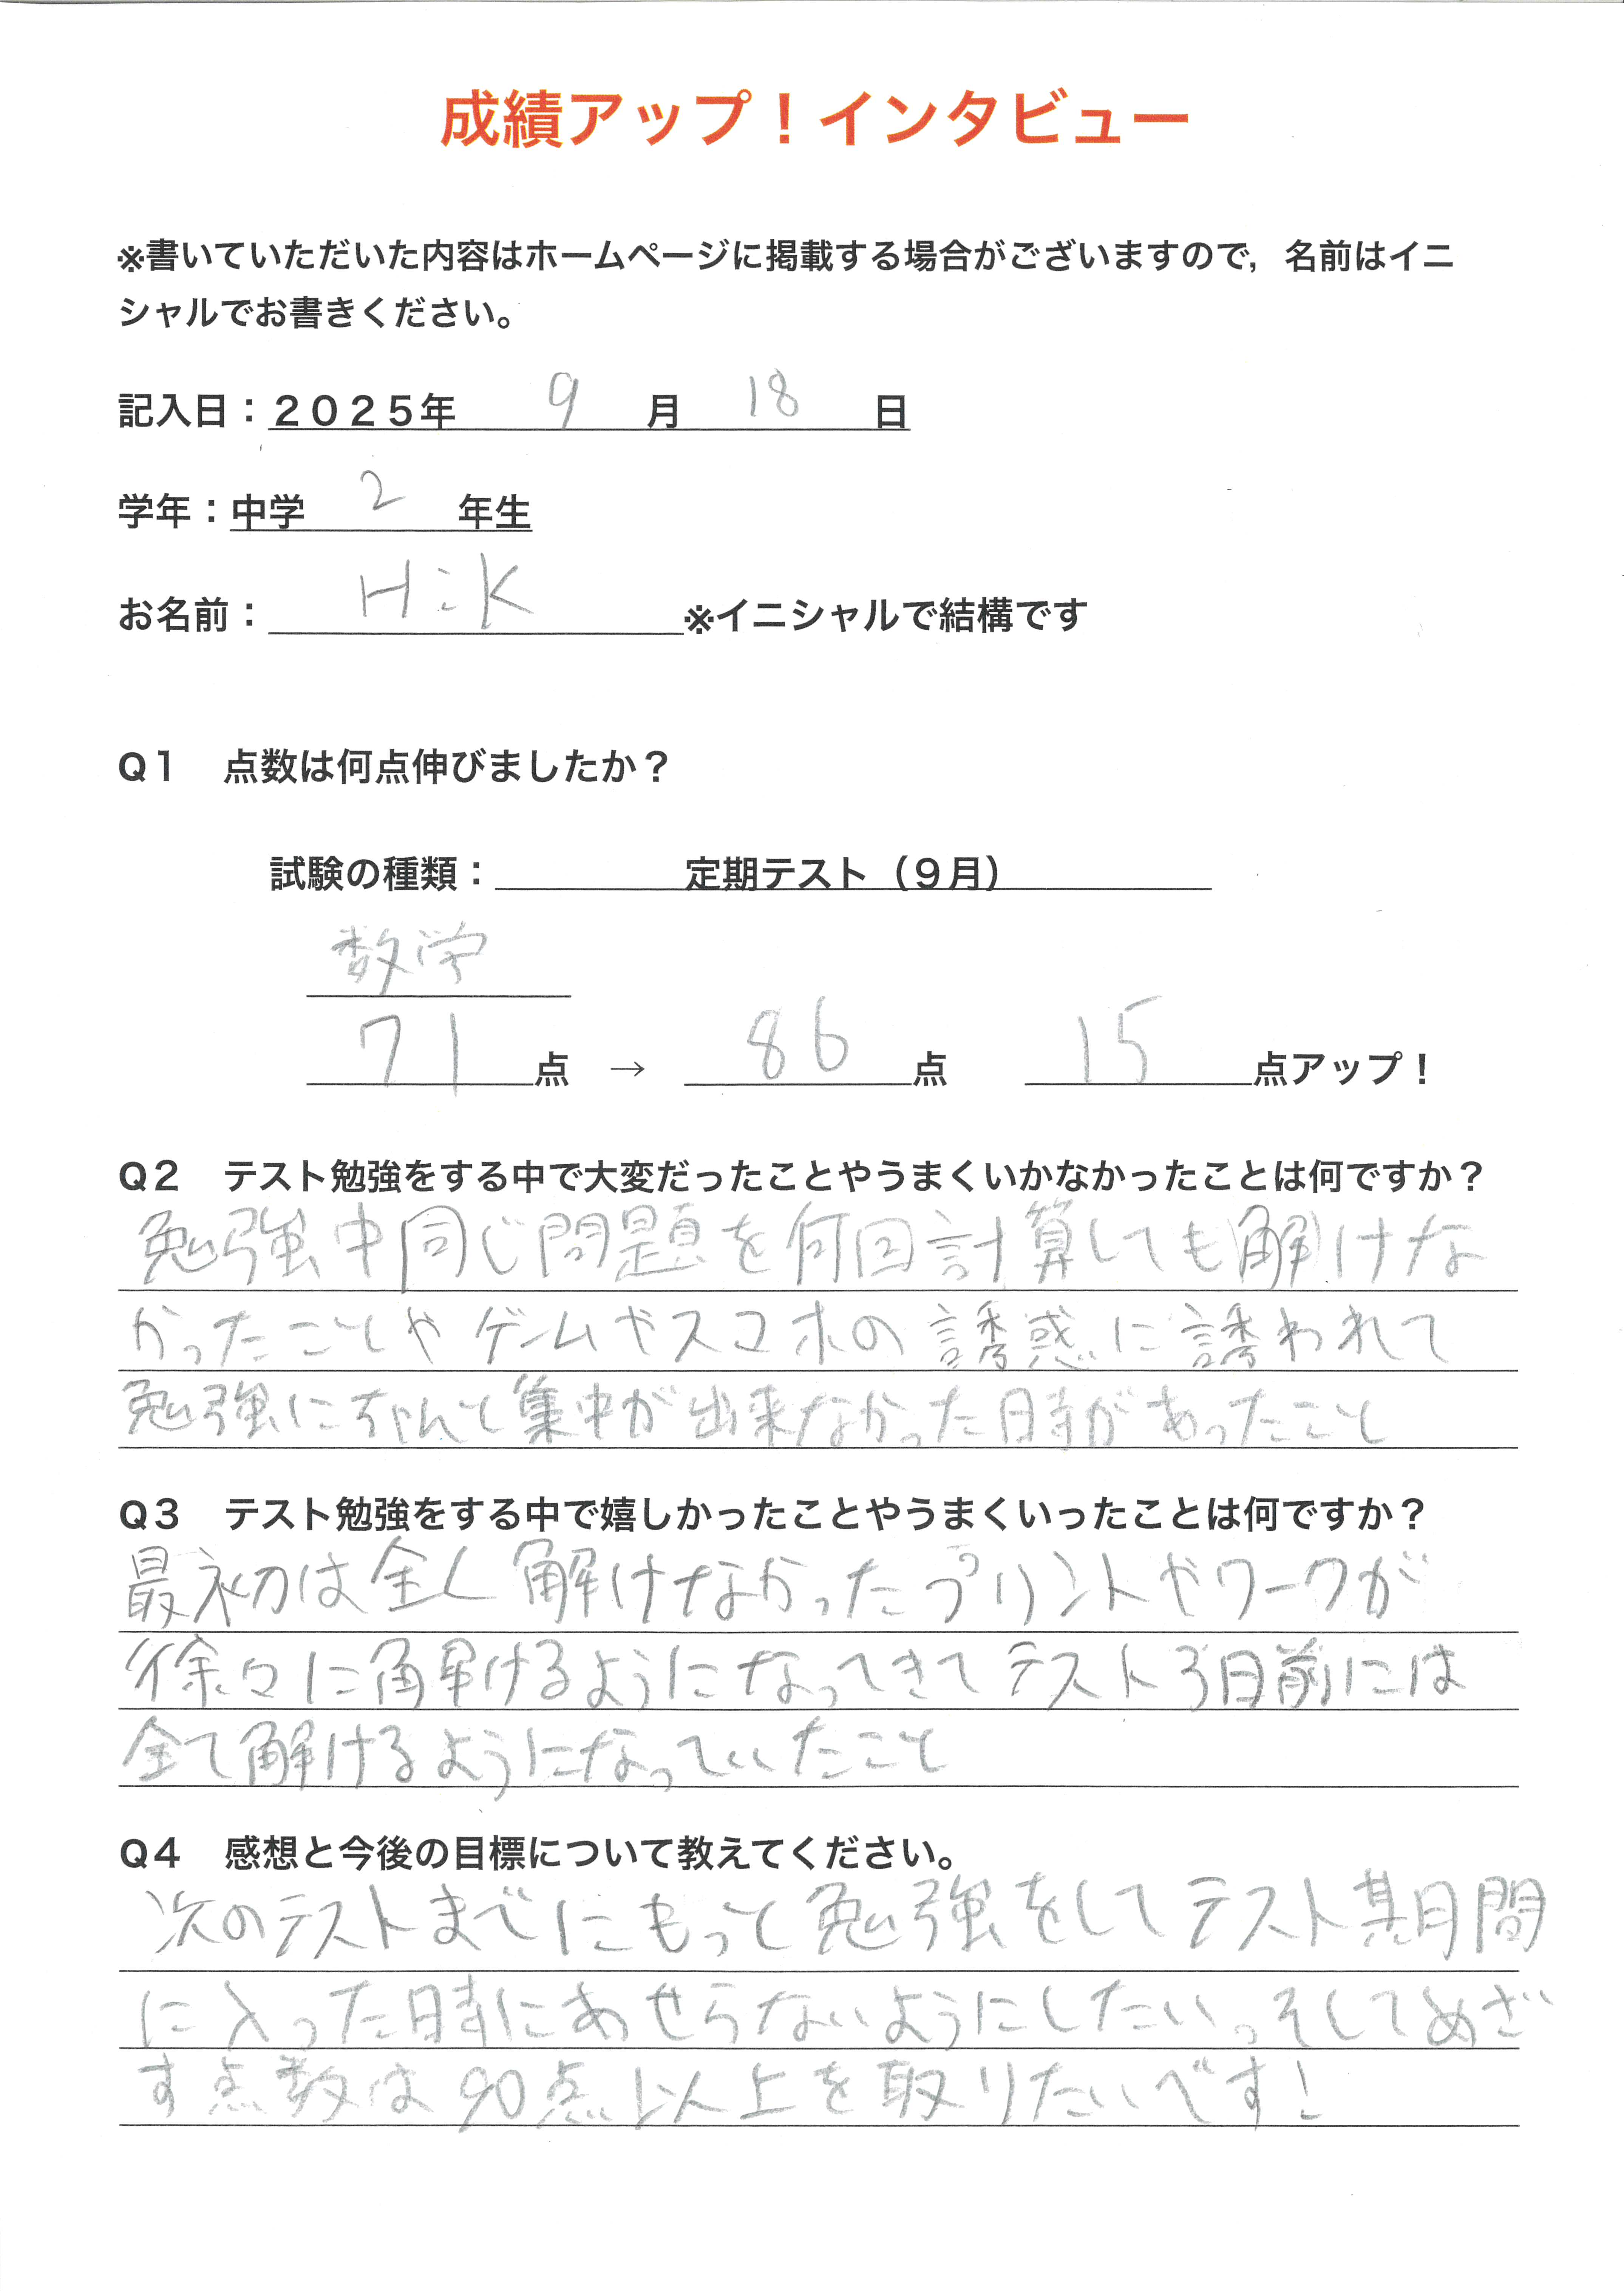 成績アップ！インタビュー
※書いていただいた内容はホームページに掲載する場合がございますので，名前はイニ
シャルでお書きください。
記入日：２０２５年 9 月 18 日
学年：中学 2 年生
お名前： H:K ※イニシャルで結構です
Q1 点数は何点伸びましたか？
試験の種類： 定期テスト（９月）
数学
71 点 → 86 点 15 点アップ！
Q2 テスト勉強をする中で大変だったことやうまくいかなかったことは何ですか？
勉強中同じ問題を何回計算しても解けな
かったことやゲームやスマホの誘惑に誘われて
勉強にちゃんと集中が出来なかった時があったこと
Q3 テスト勉強をする中で嬉しかったことやうまくいったことは何ですか？
最初は全く解けなかったプリントやワークが
徐々に解けるようになってきてテスト3日前には
全て解けるようになっていたこと
Q4 感想と今後の目標について教えてください。
次のテストまでにもっと勉強をしてテスト期間
に入った時にあせらないようにしたい。そしてめざ
す点数は90点以上を取りたいです！